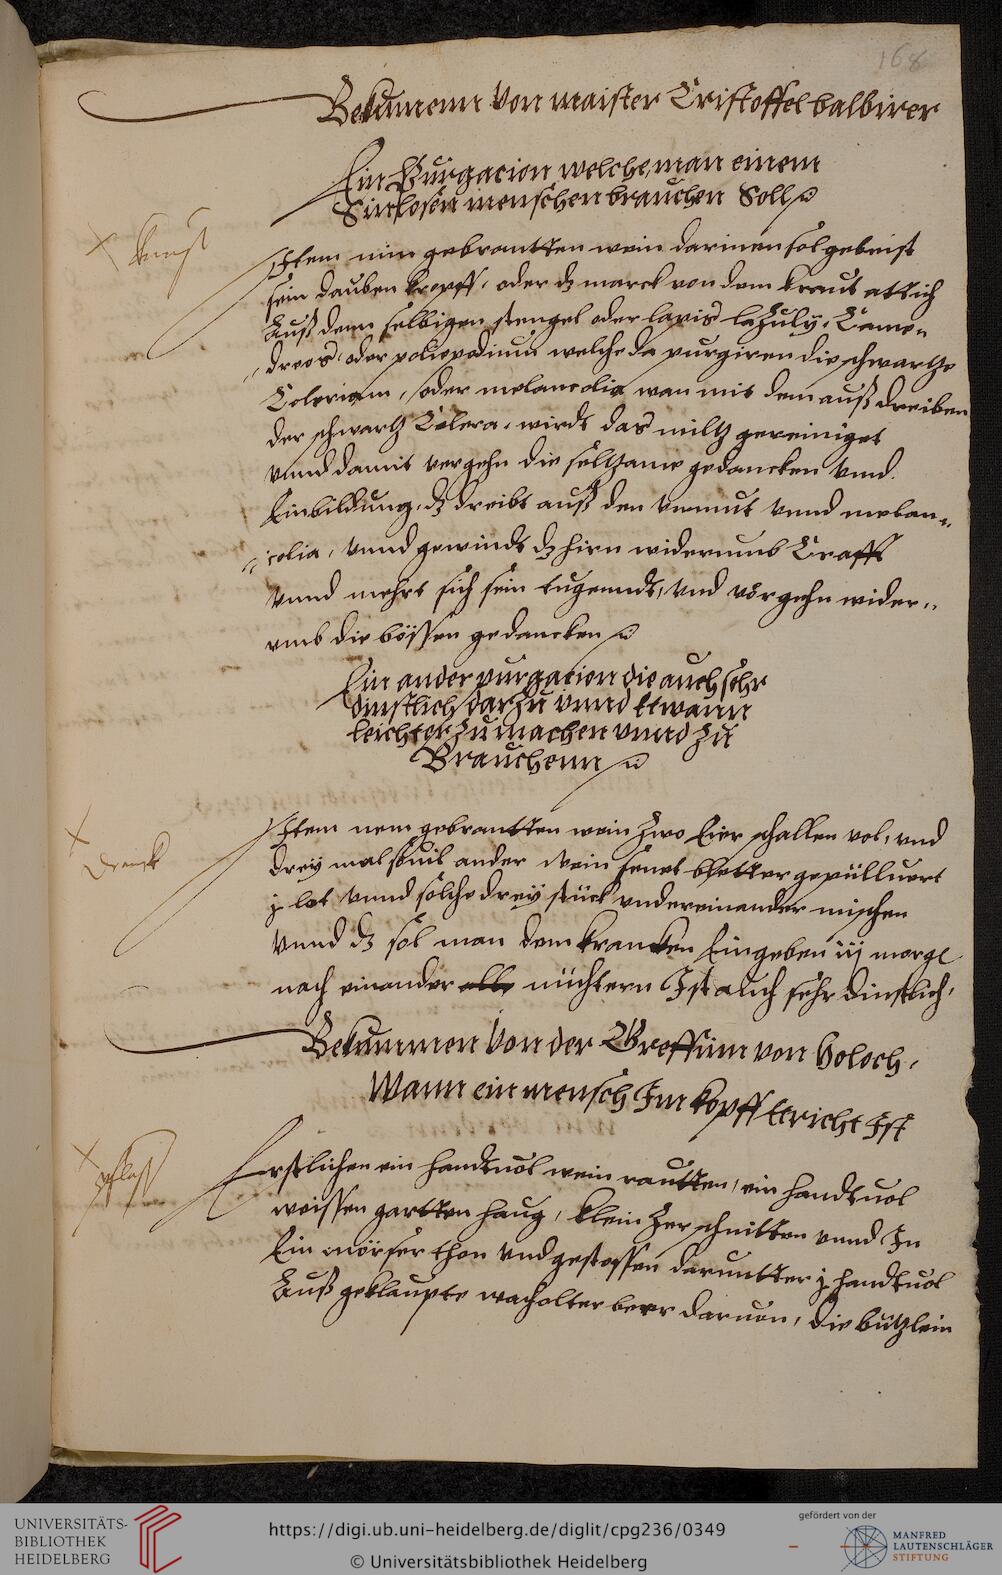 168
Bekumenn von maister Cristoffel balbirer
Ein Purgacion welche man einem
Sinlosen menschen brauchen Soll
Item nim gebrantten wein darinen sol gebeist
sein dauben kropff, oder dz marck von dem kraut attich
Auß dem selbigen stengel oder lapis lazuly, Came„
„dreos oder polipodium welche da purgiren die schwartze
Coloriam, oder melancolia wan mit dem auß dreiben
der schwartz Colera, wirdt das miltz gereiniget
vnnd damit vergehn die seltzame gedancken vnnd
Einbildung, dz dreibt auß den vnmut vnnd melan„
„colia, vnnd gewindt dz hirn widerumb Crafft
vnnd mehrt sich sein tugenndt, vnd vergehn wider„
vmb die bössen gedancken
Ein ander purgacion die auch sehr
dinstlich darzu vnnd ettwann
leichter zu machen vnnd zu
Brauchenn
Item nem gebrantten wein zwo Eier schallen vol, vnd
drey mal souil ander wein senet bletter gepülluert
j lot vnnd solche drey stück vndereinander mischen
vnnd dz sol man dem krancken Eingeben iij morge
nach einander alle nüchtern Ist auch sehr dinstlich,
Bekummen von der Greffüm von Holoch,
Wann ein mensch Im kopff terricht Ist
Erstlichen ein handtuol wein rautten, ein handtuol
weissen gartten haug, klein zerschnitten vnnd In
Ein mörser thon vnd gestossen daruntter j handtuol
Auß geklaupte wacholter beer daruon, die butzlein
dranck
UNIVERSITÄTS-
BIBLIOTHEK
HEIDELBERG
https://digi.ub.uni-heidelberg.de/diglit/cpg236/0349
© Universitätsbibliothek Heidelberg
gefördert von der
MANFRED
LAUTENSCHLÄGER
STIFTUNG